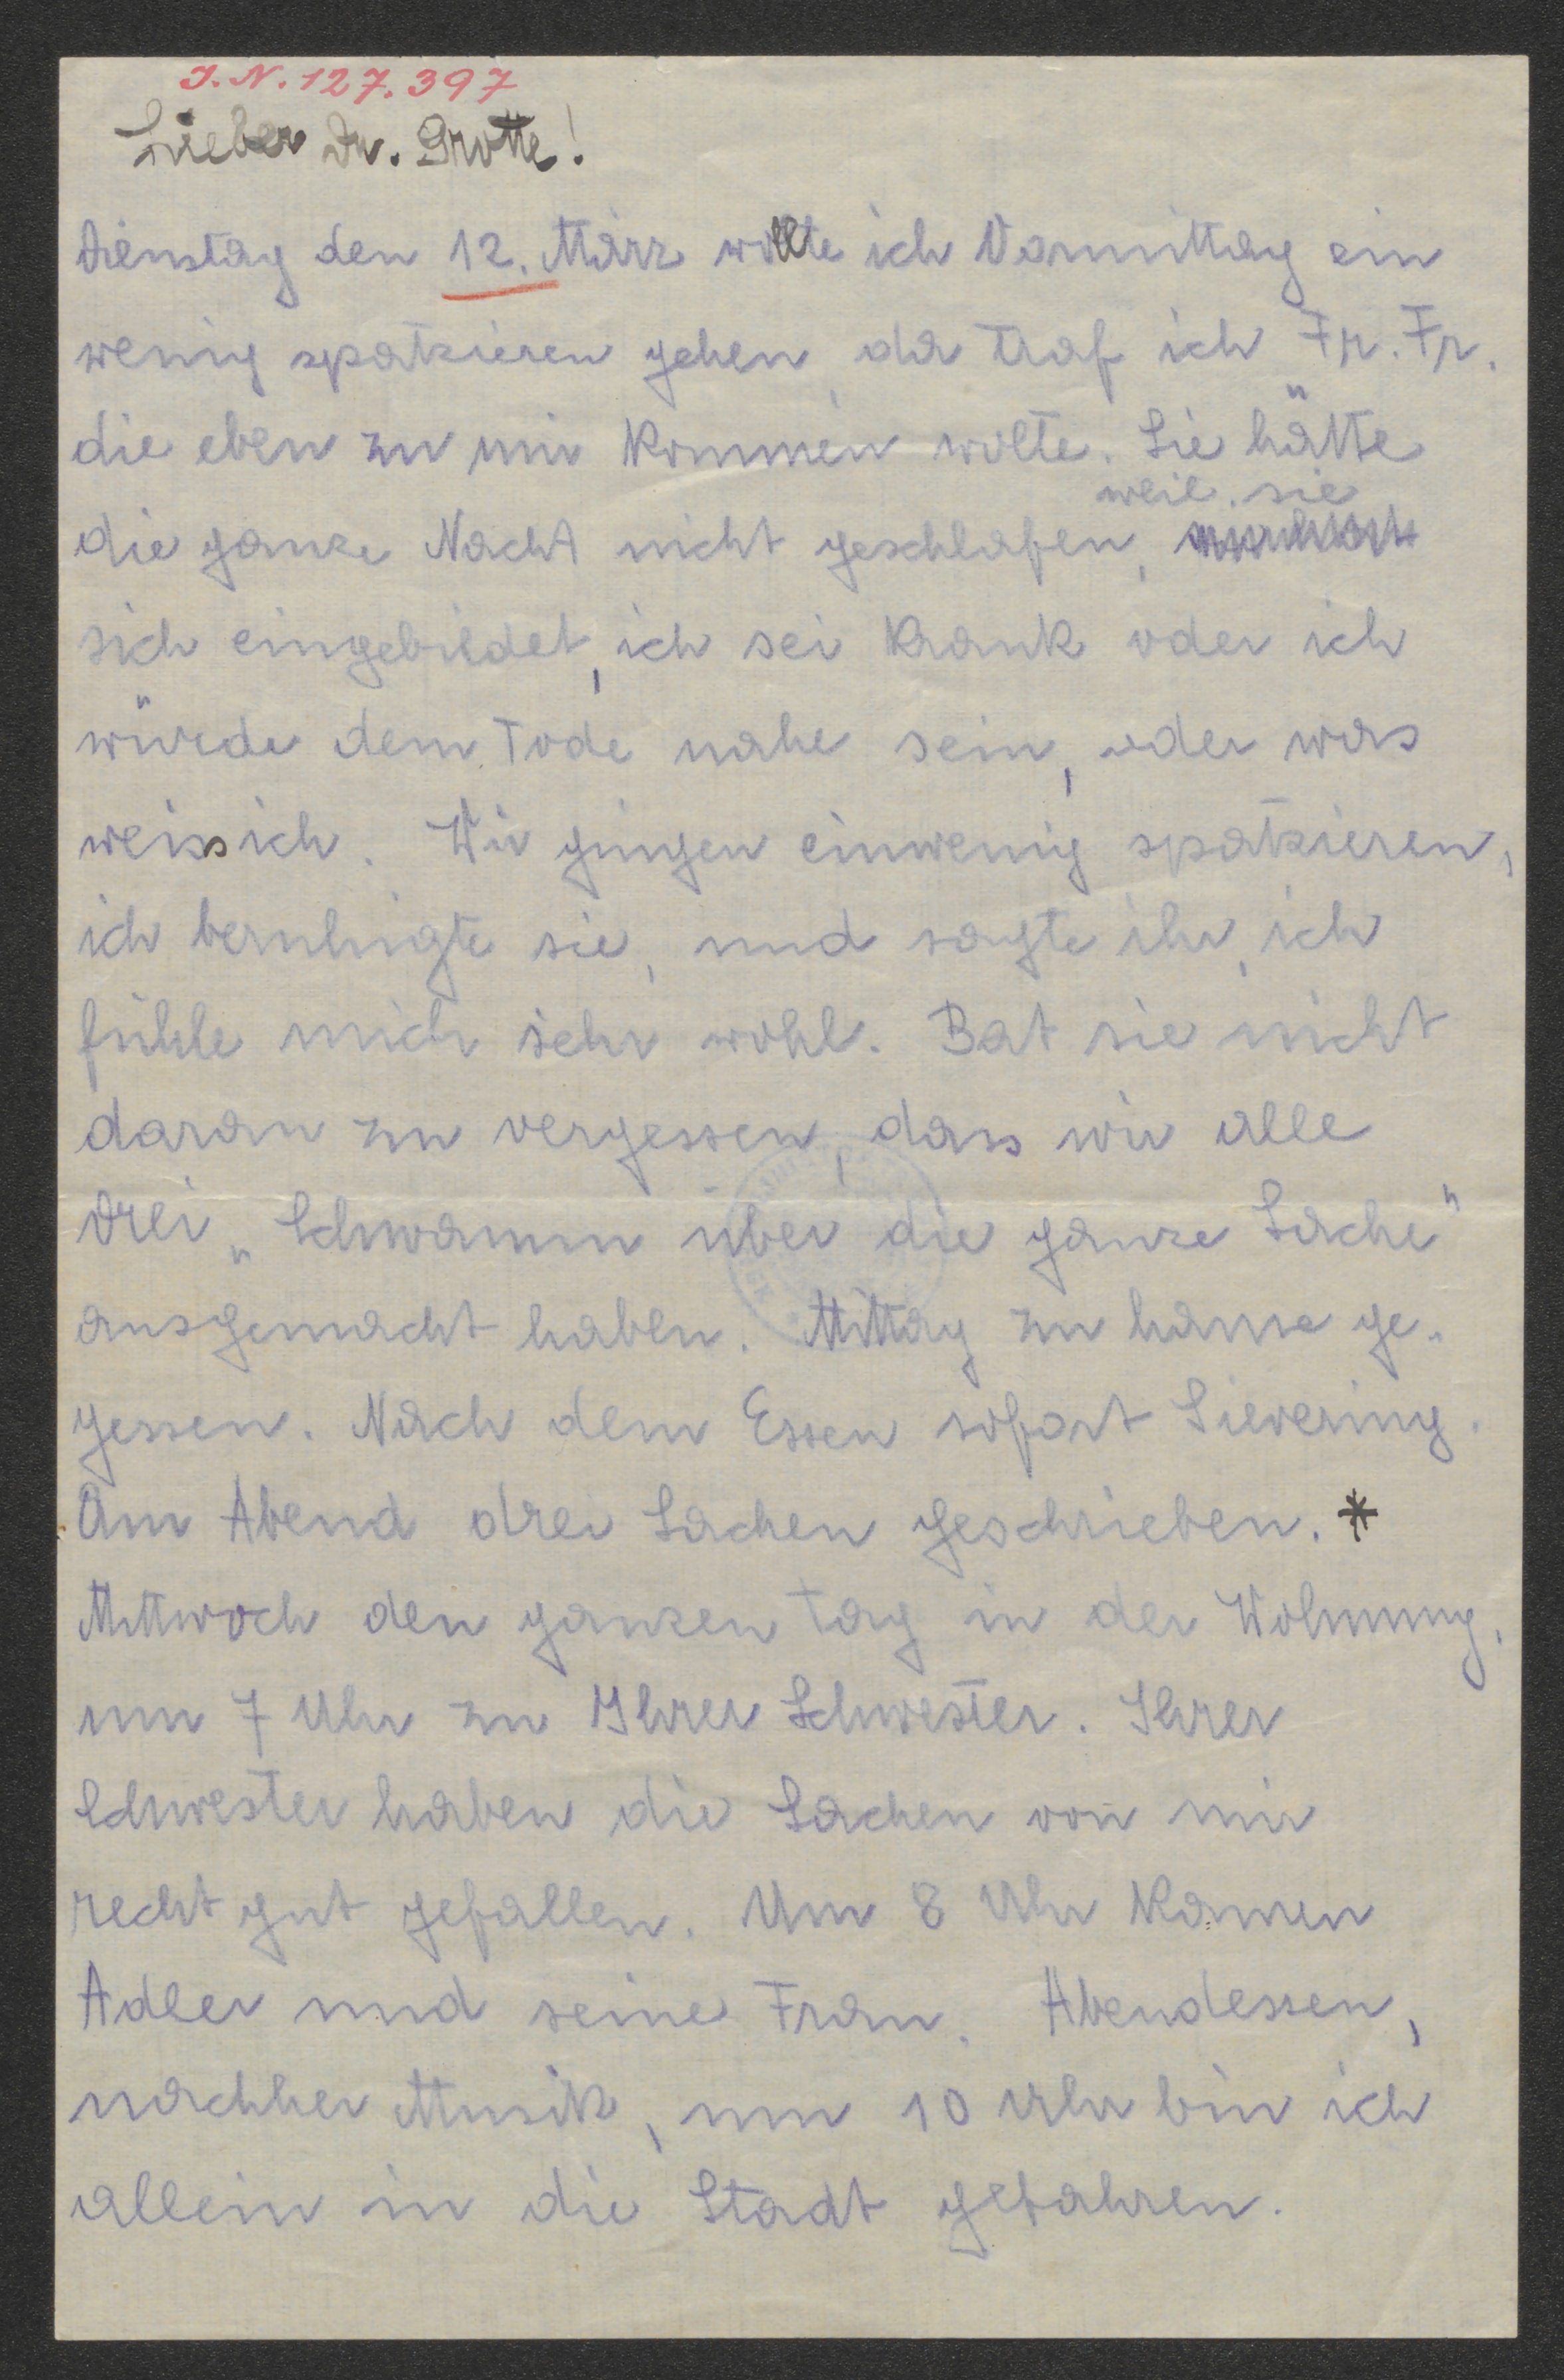 I.N. 127.397
Lieber Dr. Grotte!
Dienstag den 12. März wollte ich Vormittag ein
wenig spatzieren gehen, da traf ich Fr. Fr.
die eben zu mir kommen wolte. Sie hätte
weil sie
die ganze Nacht nicht geschlafen,
sich eingebildet, ich sei krank oder ich
würde dem Tode nahe sein, oder was
weiss ich. Wir gingen einwenig spatzieren,
ich beruhigte sie, und sagte ihr, ich
fühle mich sehr wohl. Bat sie nicht
daran zu vergessen, dass wir alle
drei „Schwamm über die ganze Sache"
ausgemacht haben. Mittag zu hause ge-
gessen. Nach dem Essen sofort Sievering.
Am Abend drei Sachen geschrieben. *
Mittwoch den ganzen Tag in der Wohnung,
um 7 Uhr zu Ihrer Schwester. Ihrer
Schwester haben die Sachen von mir
recht gut gefallen. Um 8 Uhr kamen
Adler und seine Frau. Abendessen,
nachher Musik, um 10 Uhr bin ich
allein in die Stadt gefahren.